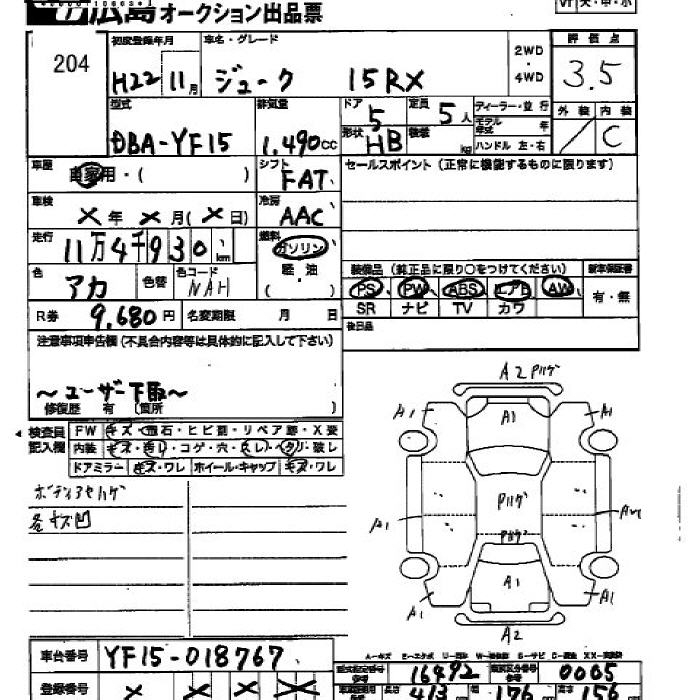 広島オークション出品票
大・中・小
204
初度登録年月
H22 11月
車名・グレード
ジューク 15RX
2WD
・
4WD
評価点
3.5
型式
DBA-YF15
排気量
1.490cc
ドア
5
定員
5人
形状
HB
ディーラー・並行
モデル年式 年
ハンドル 左・右
外装 内装
C
車歴
自家用・( )
シフト
FAT
セールスポイント(正常に機能するものに限ります)
車検
×年×月(×日)
冷房
AAC
走行
11万4千930km
燃料
ガソリン
軽・油
( )
色
アカ
色替
色コード
NAH
装備品(純正品に限り○をつけてください)
新車保証書
PS PW ABS エアB AW
有・無
SR ナビ TV カワ
R券 9,680円
名変期限 月 日
後日品
注意事項申告欄(不具合内容等は具体的に記入して下さい)
~ユーザー下取~
修復歴 有 (箇所 )
検査員記入欄
FW キズ・飛石・ヒビ割・リペア跡・X要
内装 キズ・汚れ・コゲ・穴・スレ・ヘタリ・破レ
ドアミラー キズ・ワレ ホイール・キャップ キズ・ワレ
ボディアセハゲ
各キズ凹
A2 Pハゲ
A1
A1
A1
Pハゲ
A1
Pハゲ
A1
A1
A1
A2
車台番号 YF15-018767
登録番号 × × × ×
16492
0005
長さ 413
幅 176
高 156